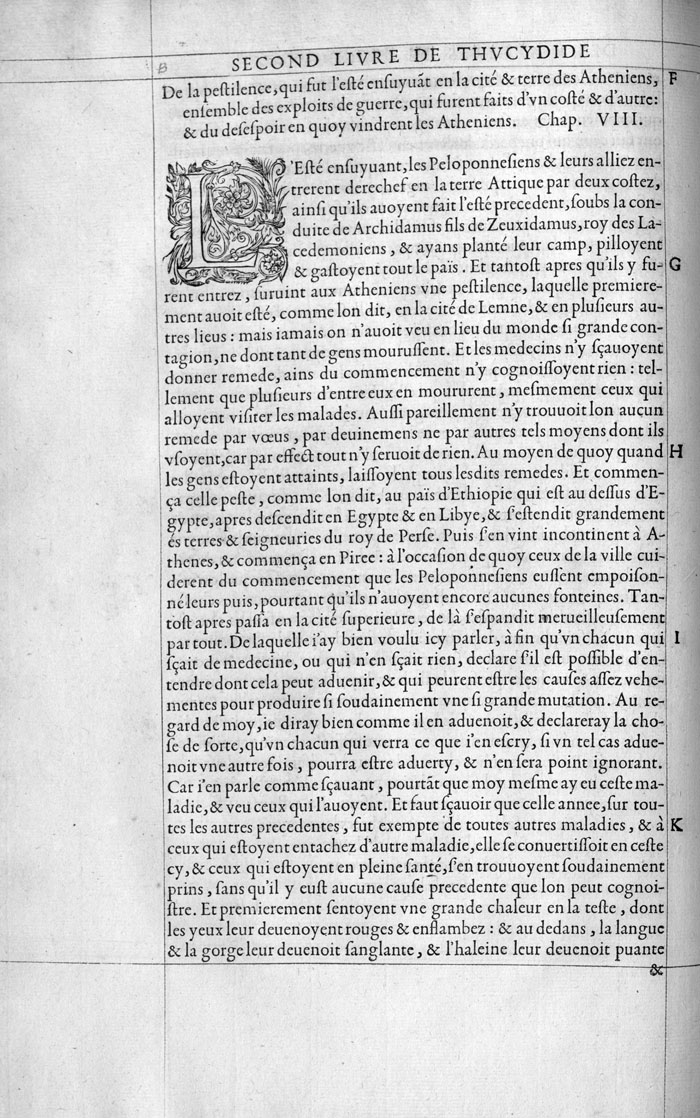 B
SECOND LIVRE DE THVCYDIDE
De la peſtilence, qui fut l'eſté enſuyuãt en la cité & terre des Atheniens, F
enſemble des exploits de guerre, qui furent faits d'vn coſté & d'autre:
& du deſeſpoir en quoy vindrent les Atheniens. Chap. VIII.
L'Eſté enſuyuant, les Peloponneſiens & leurs alliez en-
trerent derechef en la terre Attique par deux coſtez,
ainſi qu'ils auoyent fait l'eſté precedent, ſoubs la con-
duite de Archidamus fils de Zeuxidamus, roy des La-
cedemoniens, & ayans planté leur camp, pilloyent
& gaſtoyent tout le païs. Et tantoſt apres qu'ils y fu- G
rent entrez, ſuruint aux Atheniens vne peſtilence, laquelle premiere-
ment auoit eſté, comme lon dit, en la cité de Lemne, & en pluſieurs au-
tres lieus : mais iamais on n'auoit veu en lieu du monde ſi grande con-
tagion, ne dont tant de gens mouruſſent. Et les medecins n'y ſçauoyent
donner remede, ains du commencement n'y cognoiſſoyent rien : tel-
lement que pluſieurs d'entre eux en moururent, meſmement ceux qui
alloyent viſiter les malades. Auſſi pareillement n'y trouuoit lon aucun
remede par vœus, par deuinemens ne par autres tels moyens dont ils
vſoyent, car par effect tout n'y ſeruoit de rien. Au moyen de quoy quand H
les gens eſtoyent attaints, laiſſoyent tous leſdits remedes. Et commen-
ça celle peſte, comme lon dit, au païs d'Ethiopie qui eſt au deſſus d'E-
gypte, apres deſcendit en Egypte & en Libye, & ſ'eſtendit grandement
és terres & ſeigneuries du roy de Perſe. Puis ſ'en vint incontinent à A-
thenes, & commença en Piree : à l'occaſion de quoy ceux de la ville cui-
derent du commencement que les Peloponneſiens euſſent empoiſon-
né leurs puis, pourtant qu'ils n'auoyent encore aucunes fonteines. Tan-
toſt apres paſſa en la cité ſuperieure, de là ſ'eſpandit merueilleuſement
par tout. De laquelle i'ay bien voulu icy parler, à fin qu'vn chacun qui I
ſçait de medecine, ou qui n'en ſçait rien, declare ſ'il eſt poſſible d'en-
tendre dont cela peut aduenir, & qui peurent eſtre les cauſes aſſez vehe-
mentes pour produire ſi ſoudainement vne ſi grande mutation. Au re-
gard de moy, ie diray bien comme il en aduenoit, & declareray la cho-
ſe de ſorte, qu'vn chacun qui verra ce que i'en eſcry, ſi vn tel cas adue-
noit vne autre fois, pourra eſtre aduerty, & n'en ſera point ignorant.
Car i'en parle comme ſçauant, pourtãt que moy meſme ay eu ceſte ma-
ladie, & veu ceux qui l'auoyent. Et faut ſçauoir que celle annee, ſur tou-
tes les autres precedentes, fut exempte de toutes autres maladies, & à K
ceux qui eſtoyent entachez d'autre maladie, elle ſe conuertiſſoit en ceſte
cy, & ceux qui eſtoyent en pleine ſanté, ſ'en trouuoyent ſoudainement
prins, ſans qu'il y euſt aucune cauſe precedente que lon peut cognoi-
ſtre. Et premierement ſentoyent vne grande chaleur en la teſte, dont
les yeux leur deuenoyent rouges & enflambez : & au dedans, la langue
& la gorge leur deuenoit ſanglante, & l'haleine leur deuenoit puante
&